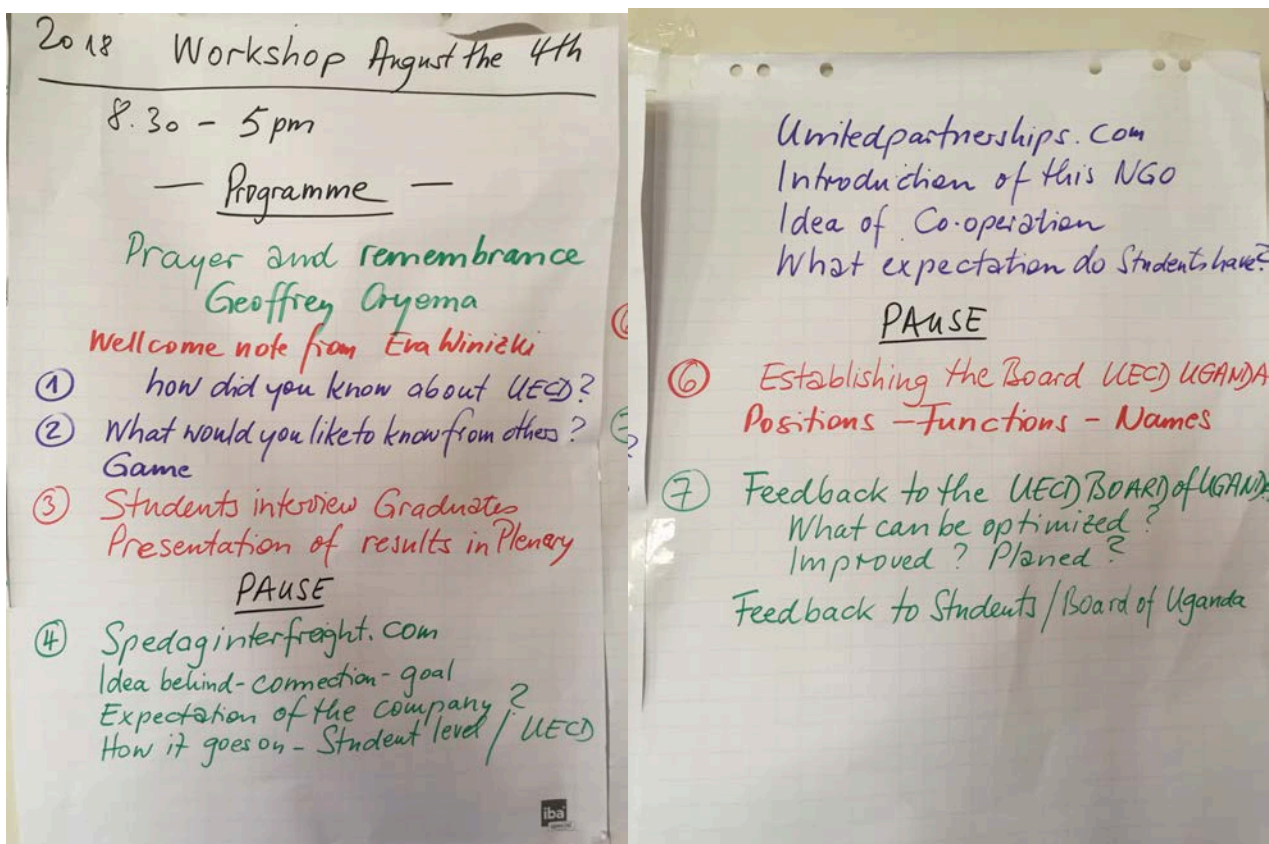 2018 Workshop August the 4th
8.30 - 5 pm
— Programme —
Prayer and remembrance
Geoffrey Oryema
Wellcome note from Eva Winizki
① how did you know about UECD?
② What would you like to know from others?
Game
③ Students interview Graduates
Presentation of results in Plenary
PAUSE
④ Spedaginterfreight.com
Idea behind - connection - goal
Expectation of the company?
How it goes on - Student level / UECD
iba
Unitedpartnerships.com
Introduction of this NGO
Idea of Co-operation
What expectation do Students have?
PAUSE
⑥ Establishing the Board UECD UGANDA
Positions - Functions - Names
⑦ Feedback to the UECD BOARD of UGANDA
What can be optimized?
Improved? Planed?
Feedback to Students / Board of Uganda